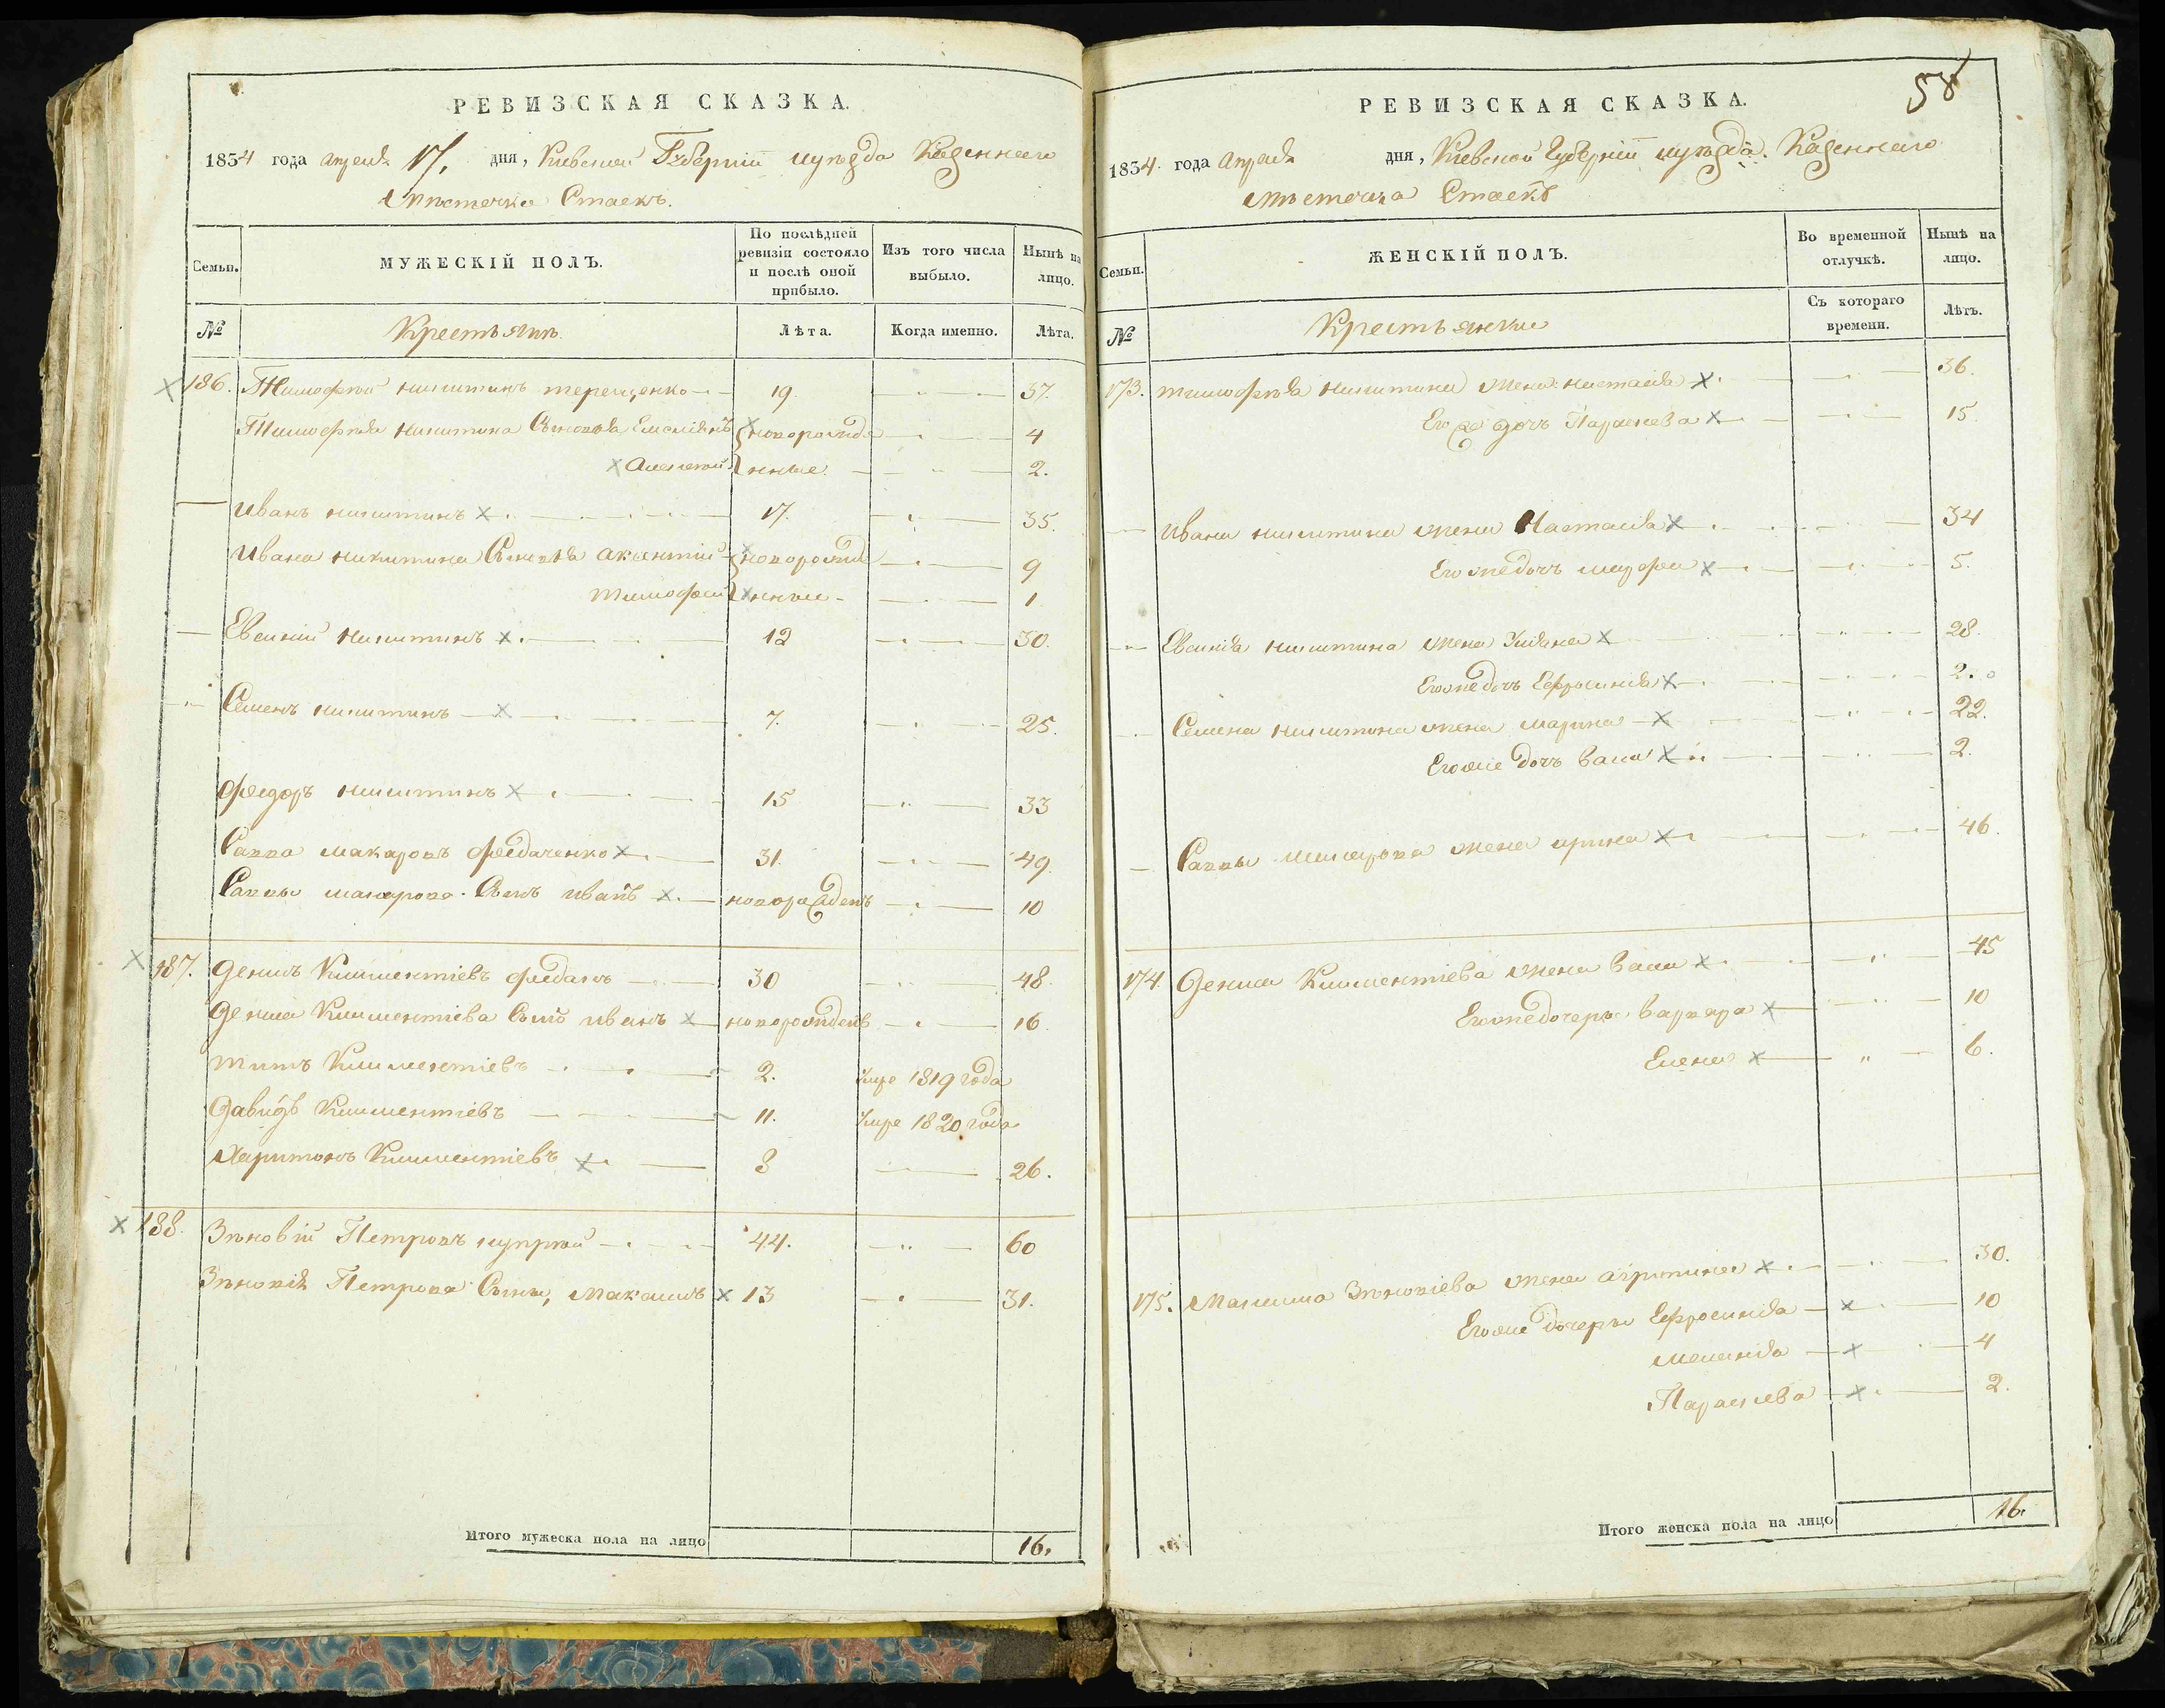 РЕВИЗСКАЯ СКАЗКА.
1834 года Апреля 17, дня, Киевской Губерніи и уѣзда Казеннаго
Мѣстечка Стаекъ.
Семьи.
МУЖЕСКІЙ ПОЛЪ.
По послѣдней ревизіи состояло и послѣ оной прибыло.
Изъ того числа выбыло.
Нынѣ на лицо.
№
Крестьянѣ.
Лѣта.
Когда именно.
Лѣта.
186. Тимофѣй никитинъ терещенко 19. 37.
Тимофѣя никитина Сыновья Емелiянъ новорожде 4
Алексѣй нные. 2.
Иванъ никитинъ 17. 35.
Ивана никитина Сыновья Аксентiй новорожде 9
тимофей нные 1
Евсикiй никитинъ 12 30.
Семенъ никитинъ 7. 25.
Федоръ никитинъ 15 33
Савва макаровъ федаченко 31. 49.
Саввы макарова Сынъ иванъ новорожденъ 10
187. Денисъ Климентіевъ федакъ 30 48.
Дениса Климентіева Сынъ иванъ новорожденъ 16
титъ Климентіевъ 2. Умре 1819 года
Давидъ Климентіевъ 11. Умре 1820 года
Харитонъ Климентіевъ 8 26.
188. Зѣновій Петровъ купрѣй 44. 60
Зѣновія Петрова Сынъ, Максимъ 13 31.
Итого мужеска пола на лицо 16,
58
РЕВИЗСКАЯ СКАЗКА.
1834. года Апреля дня, Киевской Губерніи и уѣзда Казеннаго
мѣстечка Стаекъ
Семьи.
ЖЕНСКІЙ ПОЛЪ.
Во временной отлучкѣ.
Нынѣ на лицо.
№
Крестьянки
Съ котораго времени.
Лѣтъ.
173. тимофѣя никитина жена настасiя 36.
Его же дочь Параскева 15
Ивана никитина жена Настасiя 34
Его же дочъ марфа 5.
Евсикiя никитина жена Улiяна 28.
Его же дочъ Ефросинiя 2.
Семена никитина жена марина 22.
Его же дочъ васа 2.
Саввы макарова жена ирина 46.
174. Дениса Климентіева жена васа 45
Его же дочери варвара 10
Елена 6.
175. Максима Зѣновіева жена агрипина 30.
Его же дочери Ефросинiя 10
меланiя 4
Параскева 2.
Итого женска пола на лицо 16.